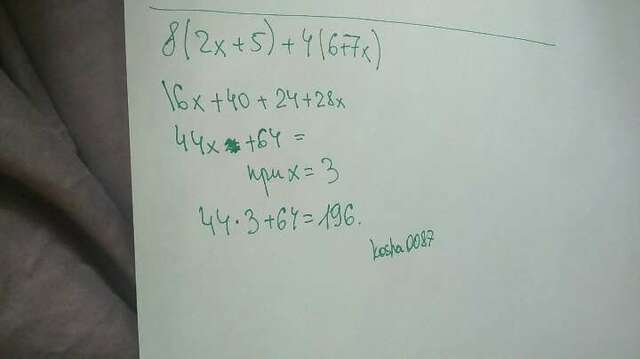 8(2x+5)+4(6+7x)
16x+40+24+28x
44x +64=
при x=3
44·3+64=196.
kosha0087